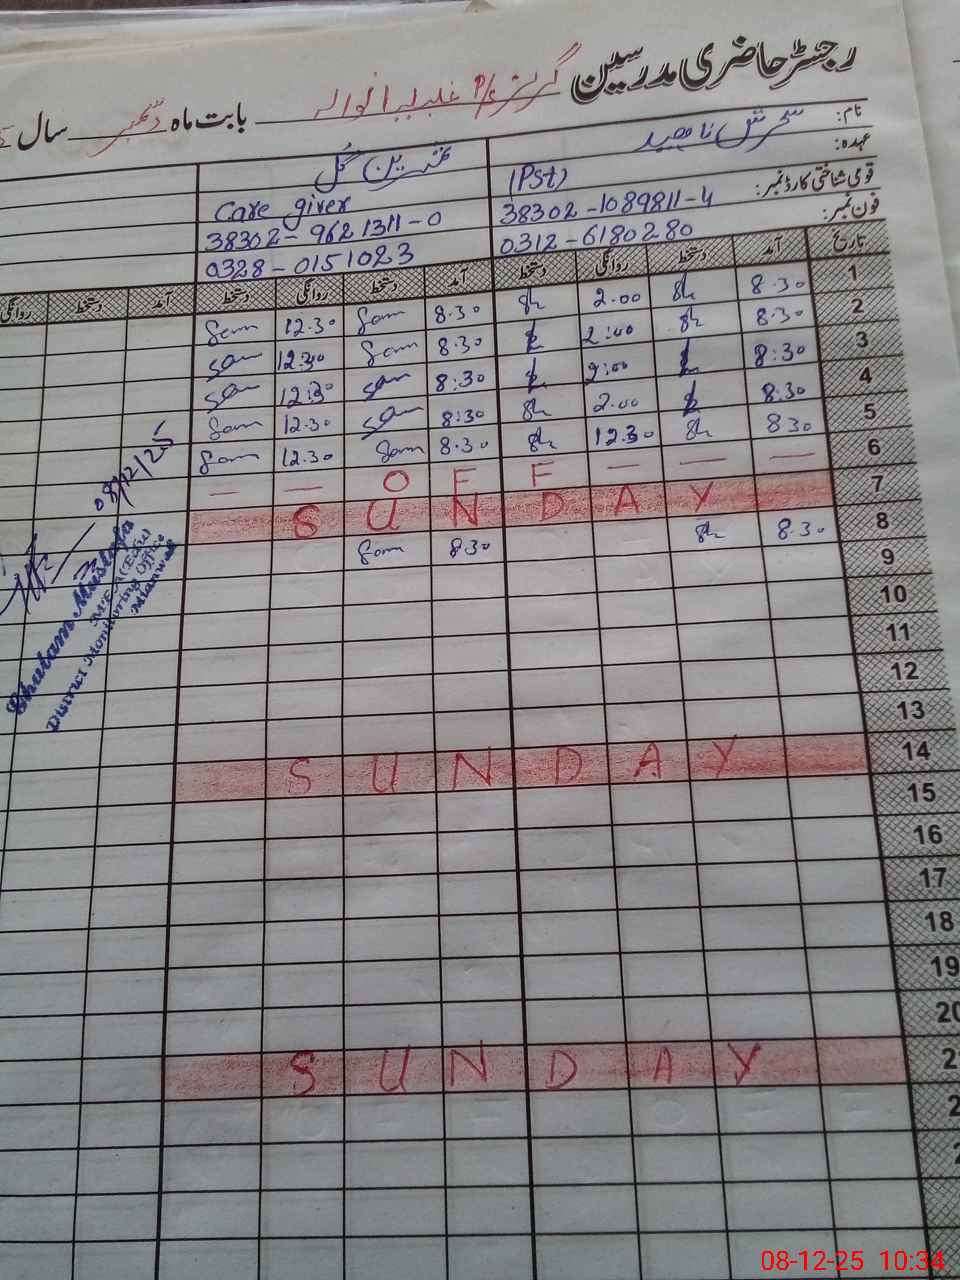 رجسٹر حاضری مدرسین گرلز P/S
بابت ماہ دسمبر سال
نام: سحرش ناہید
عہدہ: (PST) Care giver
قومی شناختی کارڈ نمبر: 38302-1089811-4 38302-9621311-0
فون نمبر: 0312-6180280 0328-0151023
تاریخ آمد دستخط روانگی دستخط آمد دستخط روانگی دستخط آمد دستخط روانگی
1 8.30 2.00 8.30 12.30
2 8.30 2:00 8.30 12.30
3 8:30 2:00 8:30 12:30
4 8:30 2.00 8:30 12.30
5 830 12.30 8.30 12.30
6 — — — O F F — —
7 S U N D A Y
8 8.30 8.30
9
10
11
12
13
14 S U N D A Y
15
16
17
18
19
20
2 S U N D A Y
2
2
08/12/25
Ghulam Mustafa
M.E.A (Edu)
District Monitoring Office
Mianwali
08-12-25 10:34